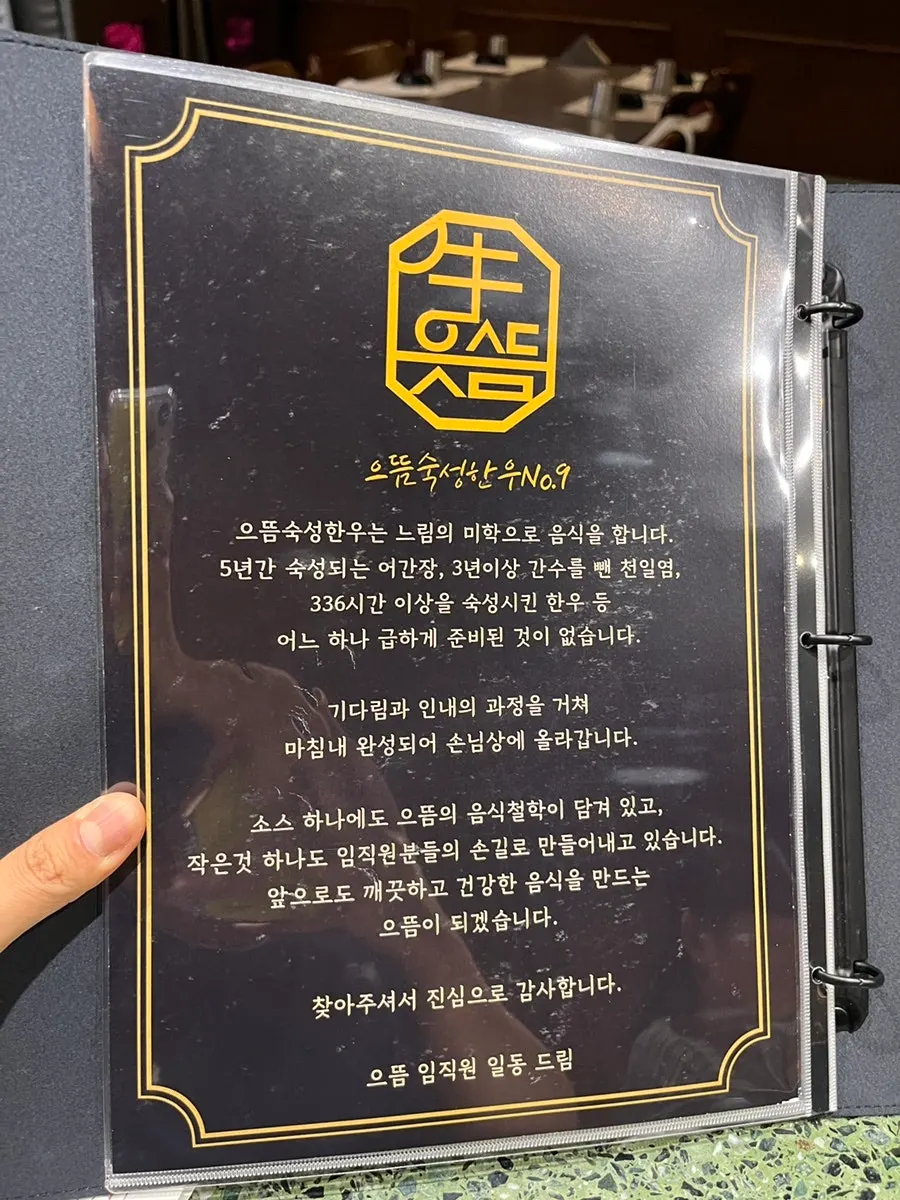 牛
으뜸
으뜸숙성한우No.9
으뜸숙성한우는 느림의 미학으로 음식을 합니다.
5년간 숙성되는 어간장, 3년이상 간수를 뺀 천일염,
336시간 이상을 숙성시킨 한우 등
어느 하나 급하게 준비된 것이 없습니다.
기다림과 인내의 과정을 거쳐
마침내 완성되어 손님상에 올라갑니다.
소스 하나에도 으뜸의 음식철학이 담겨 있고,
작은것 하나도 임직원분들의 손길로 만들어내고 있습니다.
앞으로도 깨끗하고 건강한 음식을 만드는
으뜸이 되겠습니다.
찾아주셔서 진심으로 감사합니다.
으뜸 임직원 일동 드림